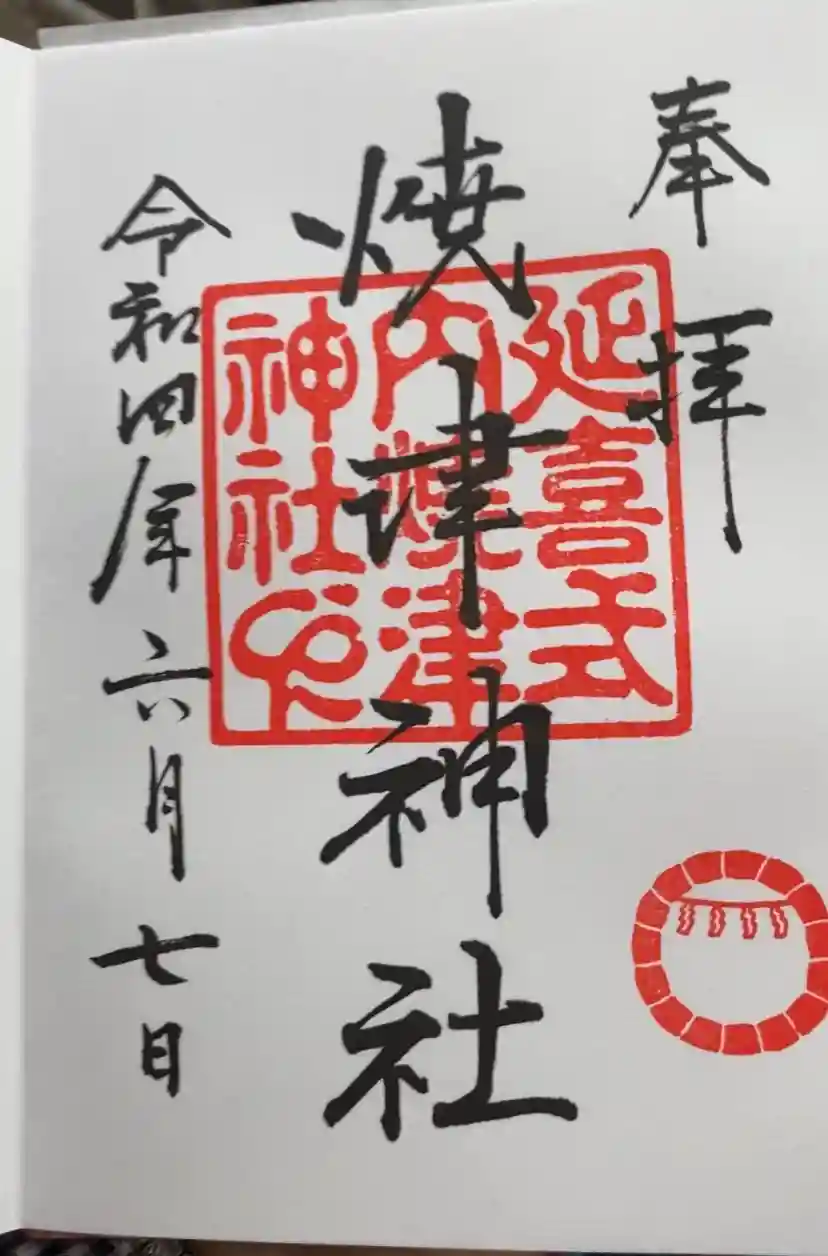 奉拝
焼津神社
令和四年六月七日
延喜式
内焼津
神社印